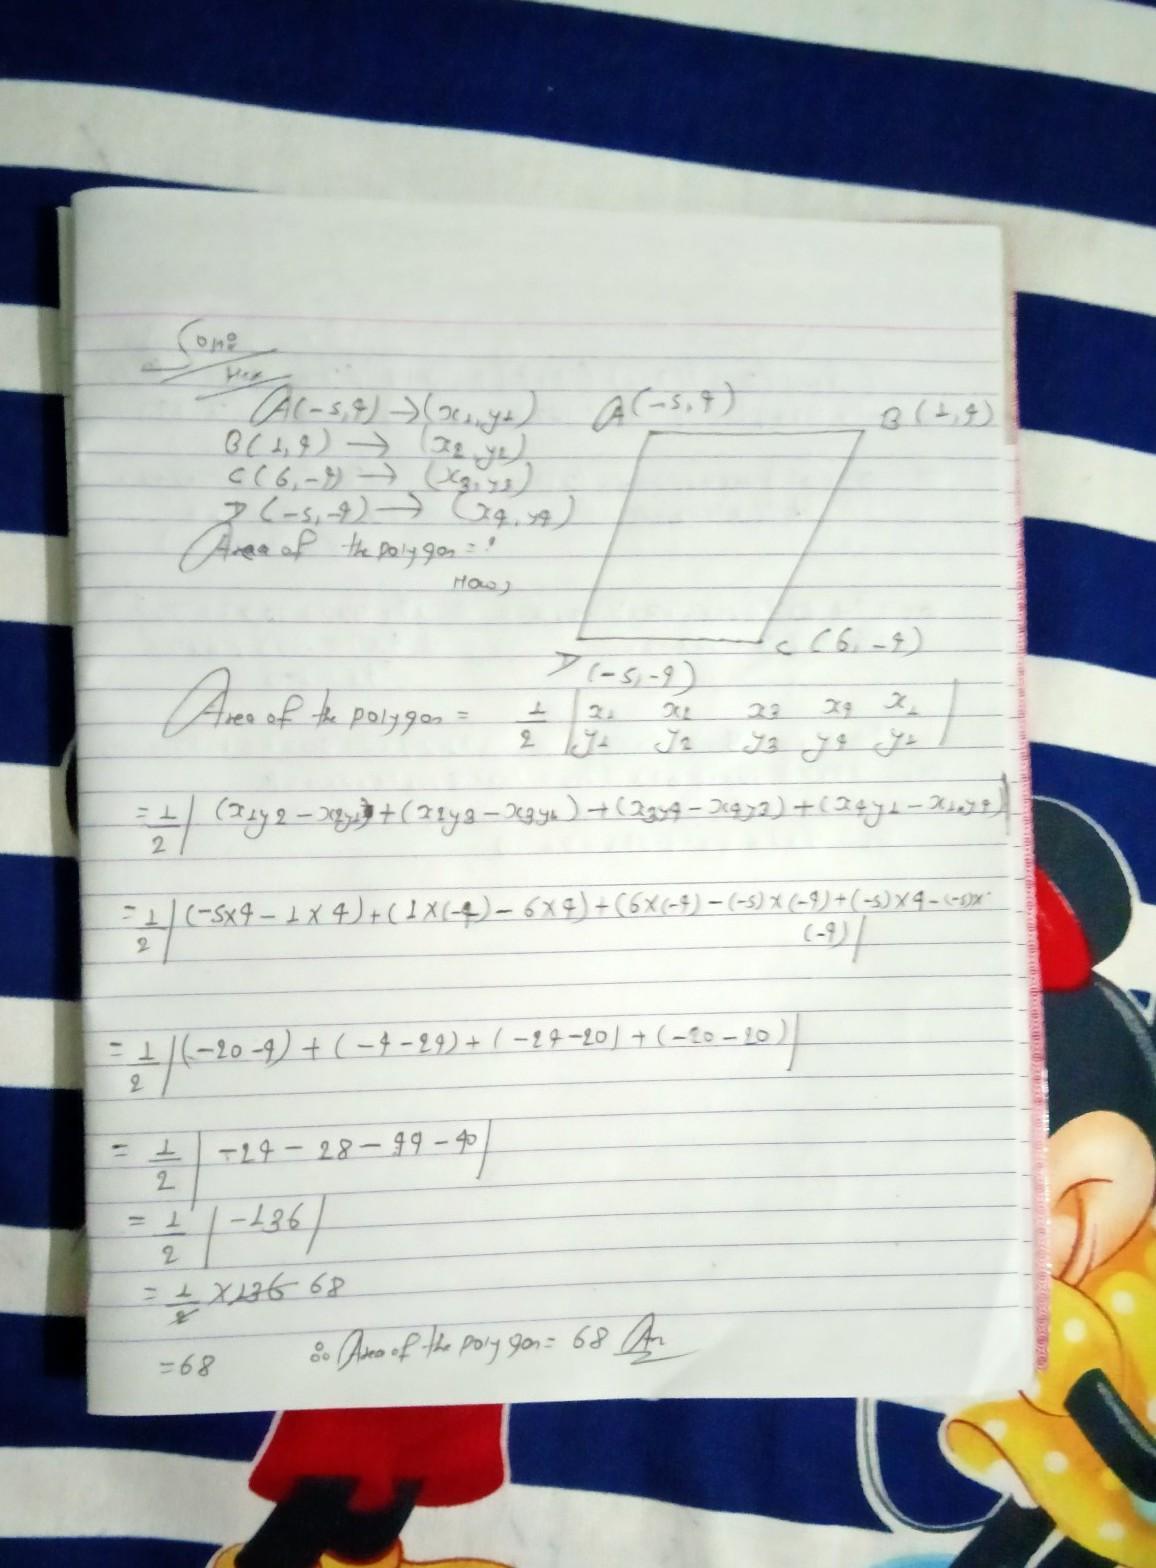 Soln:
A(-5,4) → (x1,y1)
B(1,4) → (x2,y2)
C(6,-4) → (x3,y3)
D(-5,-4) → (x4,y4)
Area of the polygon = ?
Now,
A(-5,4)
B(1,4)
C(6,-4)
D(-5,-4)
Area of the polygon = 1/2 | x1 x2 x3 x4 x1
y1 y2 y3 y4 y1 |
= 1/2 | (x1y2 - x2y1) + (x2y3 - x3y2) + (x3y4 - x4y3) + (x4y1 - x1y4) |
= 1/2 | (-5×4 - 1×4) + (1×(-4) - 6×4) + (6×(-4) - (-5)×(-4) + (-5)×4 - (-5)×
(-4) |
= 1/2 | (-20-4) + (-4-24) + (-24-20) + (-20-20) |
= 1/2 | -24 - 28 - 44 - 40 |
= 1/2 | -136 |
= 1/2 × 136 68
= 68 ∴ Area of the polygon = 68 An